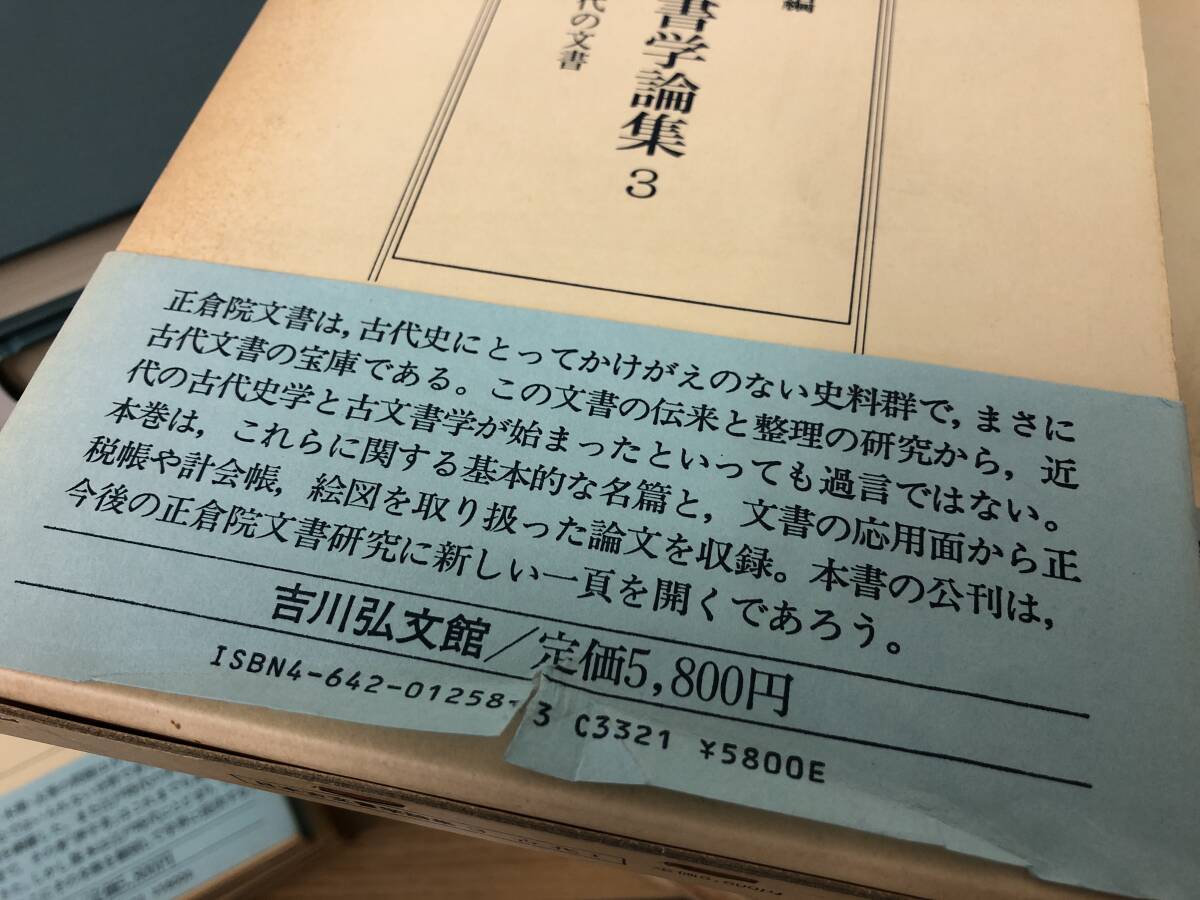 編
書学論集 3
代の文書
正倉院文書は，古代史にとってかけがえのない史料群で，まさに
古代文書の宝庫である。この文書の伝来と整理の研究から，近
代の古代史学と古文書学が始まったといっても過言ではない。
本巻は，これらに関する基本的な名篇と，文書の応用面から正
税帳や計会帳，絵図を取り扱った論文を収録。本書の公刊は，
今後の正倉院文書研究に新しい一頁を開くであろう。
吉川弘文館／定価5,800円
ISBN4-642-01258-3 C3321 ¥5800E